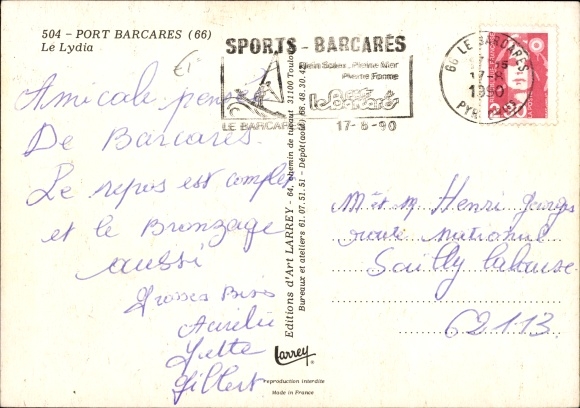 504 - PORT BARCARES (66)
Le Lydia
SPORTS - BARCARÈS
Plein Soleil - Pleine Mer
Pleine Forme
LE BARCARÈS
17-8-90
66 LE BARCARES
17-8
1990
PYR.
Amicale pensée
De Barcares.
Le repos est complet
et le Bronzage
aussi
Grosses Bises
Aurélie
Yvette
Gilbert
Editions d'Art LARREY - 64, chemin de tucaut 31100 Toulouse
Bureaux et ateliers 61.07.51.51 - Dépôt(août) 68.48.30.42
Larrey
reproduction interdite
Made in France
Mr et M. Henri Georges
route national
Sailly Labourse
62113